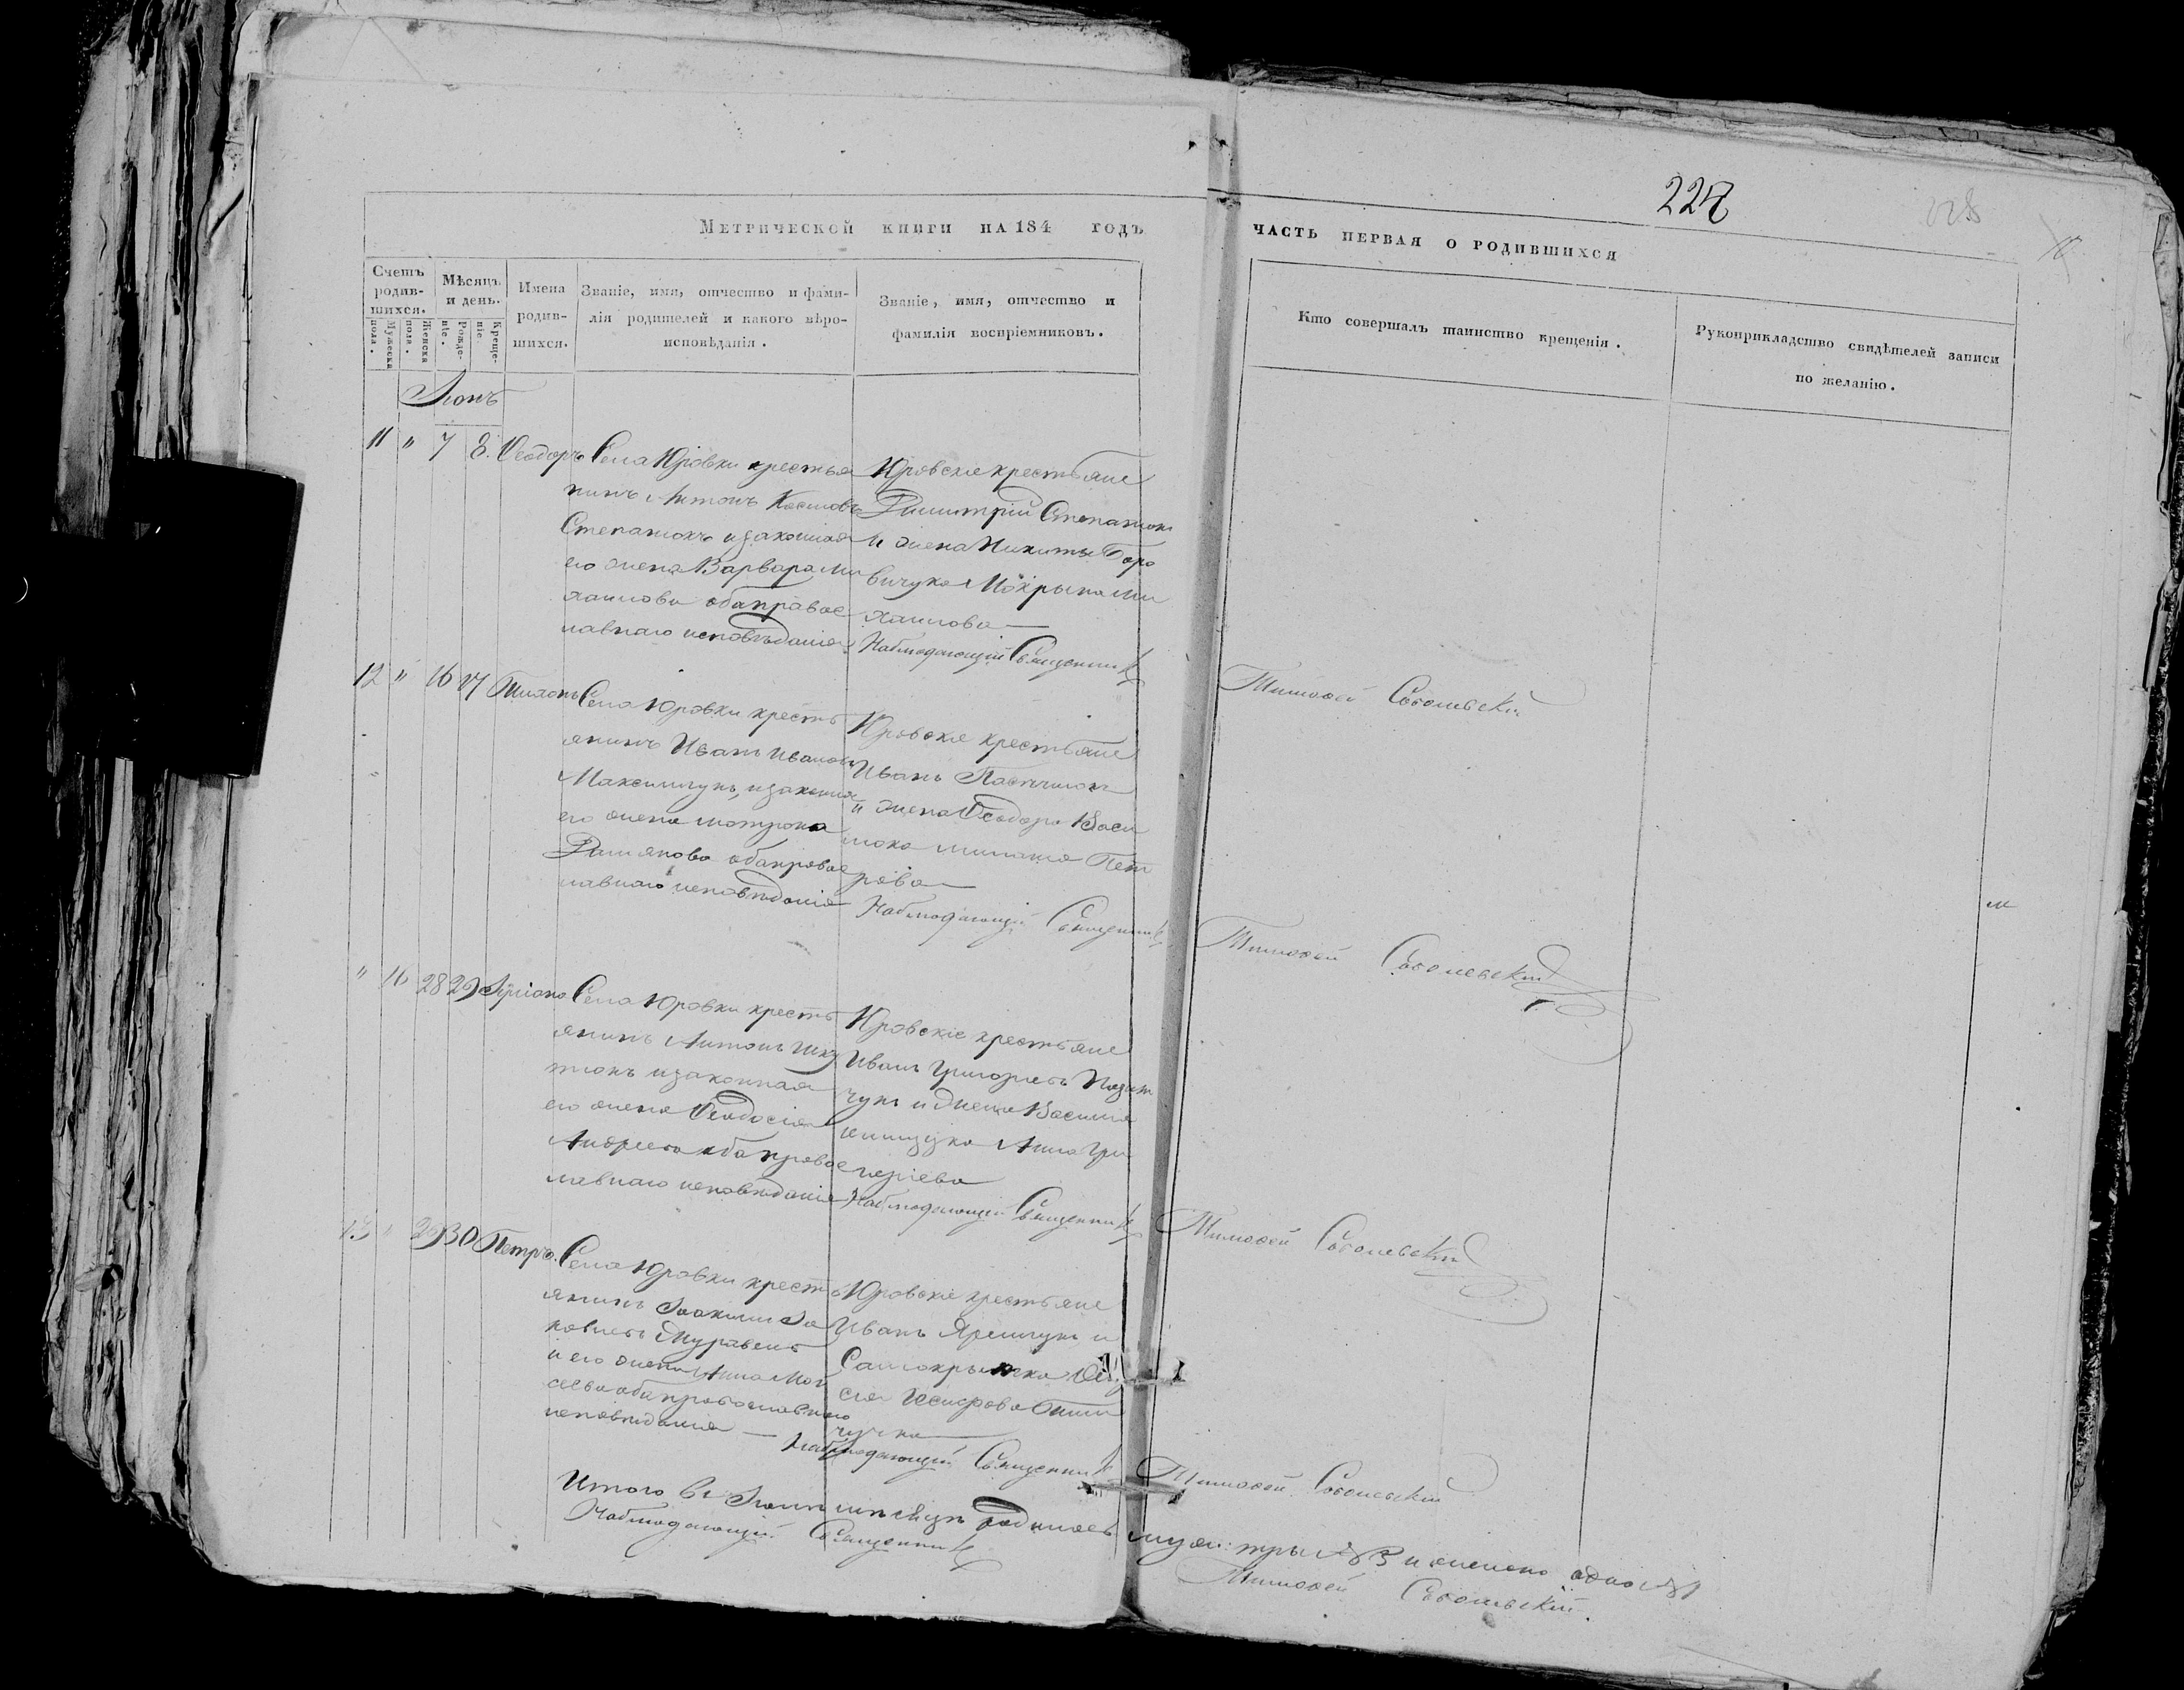 Метрической книги на 184 годъ
часть первая о родившихся
228
Счетъ родив- шихся.
Мѣсяцъ и день.
Имена родив- шихся.
Званіе, имя, отчество и фами- лія родителей и какого вѣро- исповѣданія.
Званіе, имя, отчество и фамилія воспріемниковъ.
Кто совершалъ таинство крещенія.
Рукоприкладство свидѣтелей записи по желанію.
Мужеска пола.
Женска пола.
Рожде- ніе.
Креще- ніе
Іюнь
11 " 7 8. Ѳеодоръ
Села Юровки крестья
нинъ Антонъ
Степанюкъ и законная
его жена Варвара Ми
хаилова оба правос
лавнаго исповѣданія.
Юровскіе крестьяне
Димитрій Степанюк
и жена Никиты
Мокрына Ми
хаилова
Наблюдающій Священник
Тимоѳей Соболевскій
12 " 16 17 Тихонъ
Села Юровки кресть
янинъ Иванъ Ивановъ
Максимчукъ, и законная
его жена Мотрона
Дамянова оба правос
лавнаго исповѣданія
Юровскіе крестьяне
Иванъ
и жена Ѳеодора Васи
Пет
рова
Наблюдающій Священник
Тимоѳей Соболевскій
" 16 28 29
Села Юровки кресть
янинъ Антонъ
и законная
его жена Ѳеодосія
Андреева оба правос
лавнаго исповѣданія
Юровскіе крестьяне
Иванъ Григорьевъ
чукъ и жена Василія
Анна Гри
горіева
Наблюдающій Священник
Тимоѳей Соболевскій
13 " 29 30 Петръ.
Села Юровки кресть
янинъ Іоакимъ Іа
ковлевъ
и его жена Анна Мои
сеева оба православнаго
исповѣданія
Юровскіе крестьяне
Иванъ Яремчукъ и
чука
Наблюдающій Священник
Тимоѳей Соболевскій
Итого въ Іюнѣ мѣсяцѣ родилось муж: три № 3 и женско одно № 1
Наблюдающій Священник
Тимоѳей Соболевскій.